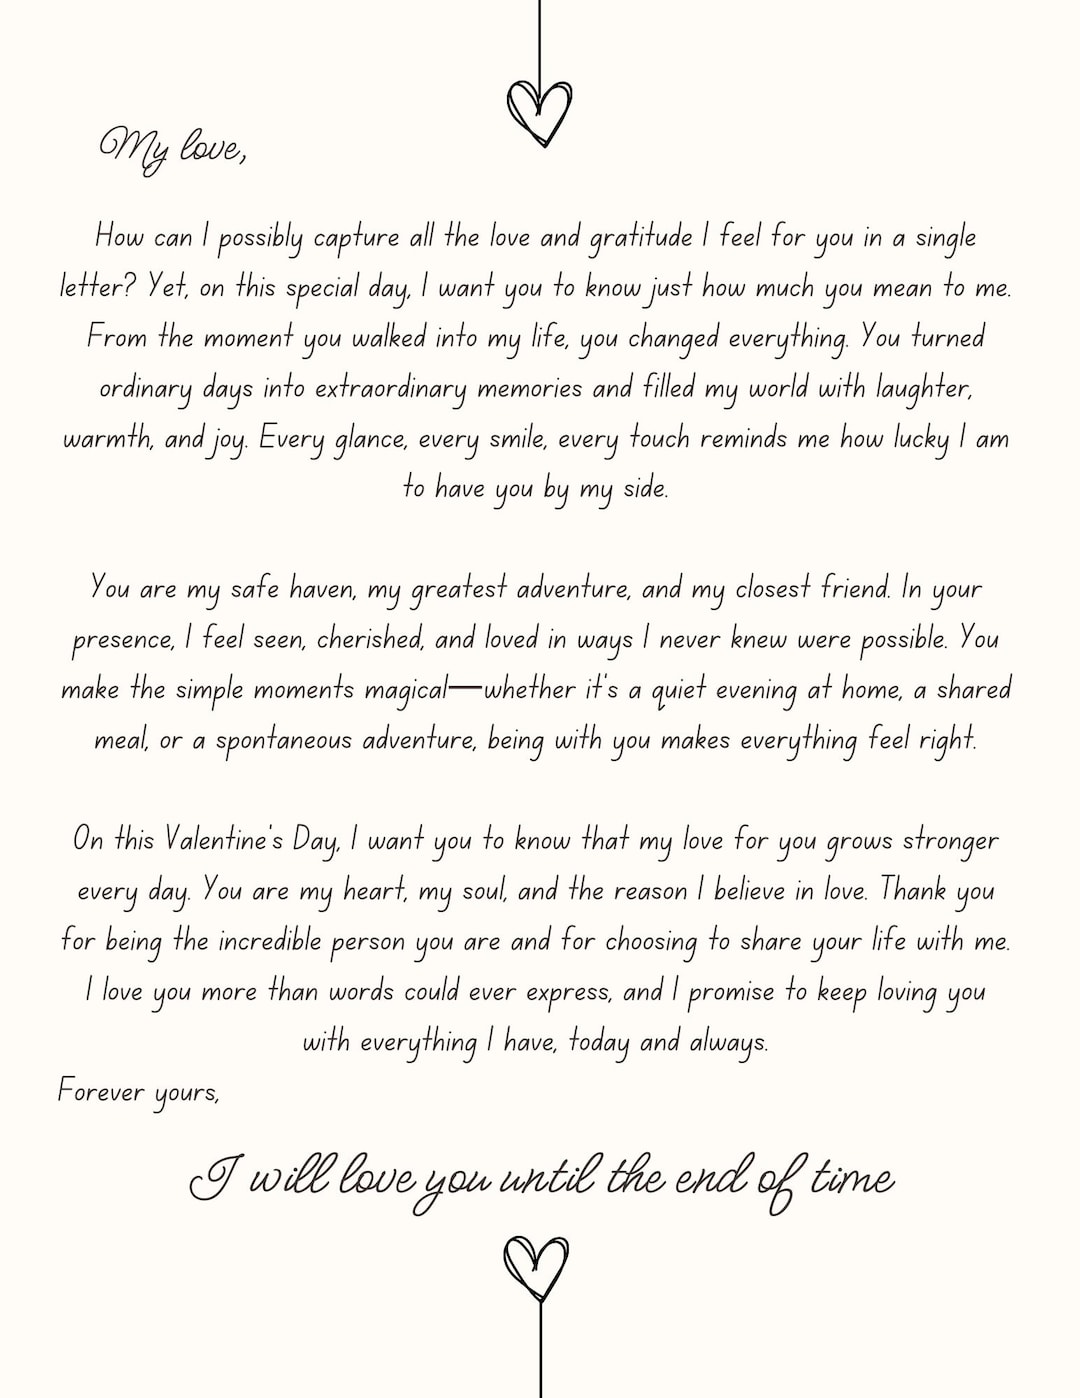 My love,
How can I possibly capture all the love and gratitude I feel for you in a single
letter? Yet, on this special day, I want you to know just how much you mean to me.
From the moment you walked into my life, you changed everything. You turned
ordinary days into extraordinary memories and filled my world with laughter,
warmth, and joy. Every glance, every smile, every touch reminds me how lucky I am
to have you by my side.
You are my safe haven, my greatest adventure, and my closest friend. In your
presence, I feel seen, cherished, and loved in ways I never knew were possible. You
make the simple moments magical—whether it's a quiet evening at home, a shared
meal, or a spontaneous adventure, being with you makes everything feel right.
On this Valentine's Day, I want you to know that my love for you grows stronger
every day. You are my heart, my soul, and the reason I believe in love. Thank you
for being the incredible person you are and for choosing to share your life with me.
I love you more than words could ever express, and I promise to keep loving you
with everything I have, today and always.
Forever yours,
I will love you until the end of time